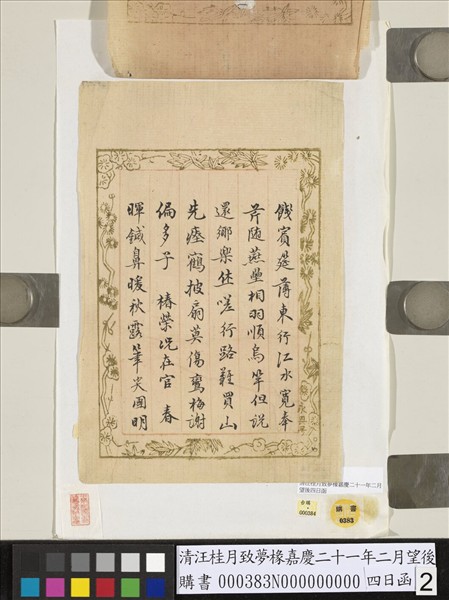 餞賓筵薄東行江水寬奉
斧随燕壘相羽順烏竿但説
還鄉樂休嗟行路難買山
先瘞鶴披扇莫傷鸞梅謝
偏多子 椿榮況在官 春
暉鍼鼻暖秋露筆尖團明
清汪桂月致夢椽嘉慶二十一年二月
望後四日函
購書
0383
000384
清汪桂月致夢椽嘉慶二十一年二月望後
購書 000383N000000000 四日函 2